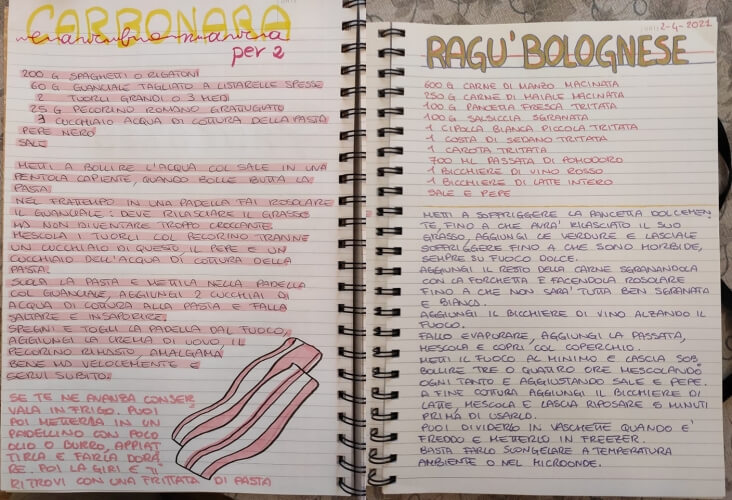 CARBONARA
per 2
200 G SPAGHETTI O RIGATONI
60 G GUANCIALE TAGLIATO A LISTARELLE SPESSE
2 TUORLI GRANDI O 3 MEDI
25 G PECORINO ROMANO GRATUGIATO
3 CUCCHIAIO ACQUA DI COTTURA DELLA PASTA
PEPE NERO
SALE
METTI A BOLLIRE L'ACQUA COL SALE IN UNA
PENTOLA CAPIENTE, QUANDO BOLLE BUTTA LA
PASTA
NEL FRATTEMPO IN UNA PADELLA FAI ROSOLARE
IL GUANCIALE: DEVE RILASCIARE IL GRASSO
MA NON DIVENTARE TROPPO CROCCANTE.
MESCOLA I TUORLI COL PECORINO TRANNE
UN CUCCHIAIO DI QUESTO, IL PEPE E UN
CUCCHIAIO DELL'ACQUA DI COTTURA DELLA
PASTA.
SCOLA LA PASTA E METTILA NELLA PADELLA
COL GUANCIALE, AGGIUNGI 2 CUCCHIAI DI
ACQUA DI COTTURA ALLA PASTA E FALLA
SALTARE E INSAPORIRE.
SPEGNI E TOGLI LA PADELLA DAL FUOCO,
AGGIUNGI LA CREMA DI UOVO, IL
PECORINO RIMASTO, AMALGAMA
BENE MA VELOCEMENTE E
SERVI SUBITO.
SE TE NE AVANZA CONSER
VALA IN FRIGO. PUOI
POI METTERLA IN UN
PADELLINO CON POCO
OLIO O BURRO, APPIAT
TIRLA E FARLA DORA
RE. POI LA GIRI E TI
RITROVI CON UNA FRITTATA DI PASTA
2-4-2021
RAGU' BOLOGNESE
600 G CARNE DI MANZO MACINATA
250 G CARNE DI MAIALE MACINATA
100 G PANCETTA FRESCA TRITATA
100 G SALSICCIA SGRANATA
1 CIPOLLA BIANCA PICCOLA TRITATA
1 COSTA DI SEDANO TRITATA
1 CAROTA TRITATA
700 ML PASSATA DI POMODORO
1 BICCHIERE DI VINO ROSSO
1 BICCHIERE DI LATTE INTERO
SALE E PEPE
METTI A SOFFRIGGERE LA PANCETTA DOLCEMEN
TE, FINO A CHE AVRA' RILASCIATO IL SUO
GRASSO, AGGIUNGI LE VERDURE E LASCIALE
SOFFRIGGERE FINO A CHE SONO MORBIDE,
SEMPRE SU FUOCO DOLCE.
AGGIUNGI IL RESTO DELLA CARNE SGRANANDOLA
CON LA FORCHETTA E FACENDOLA ROSOLARE
FINO A CHE NON SARA' TUTTA BEN SGRANATA
E BIANCA.
AGGIUNGI IL BICCHIERE DI VINO ALZANDO IL
FUOCO.
FALLO EVAPORARE, AGGIUNGI LA PASSATA,
MESCOLA E COPRI COL COPERCHIO.
METTI IL FUOCO AL MINIMO E LASCIA SOB
BOLLIRE TRE O QUATTRO ORE MESCOLANDO
OGNI TANTO E AGGIUSTANDO SALE E PEPE.
A FINE COTTURA AGGIUNGI IL BICCHIERE DI
LATTE, MESCOLA E LASCIA RIPOSARE 5 MINUTI
PRIMA DI USARLO.
PUOI DIVIDERLO IN VASCHETTE QUANDO E'
FREDDO E METTERLO IN FREEZER.
BASTA FARLO SCONGELARE A TEMPERATURA
AMBIENTE O NEL MICROONDE.